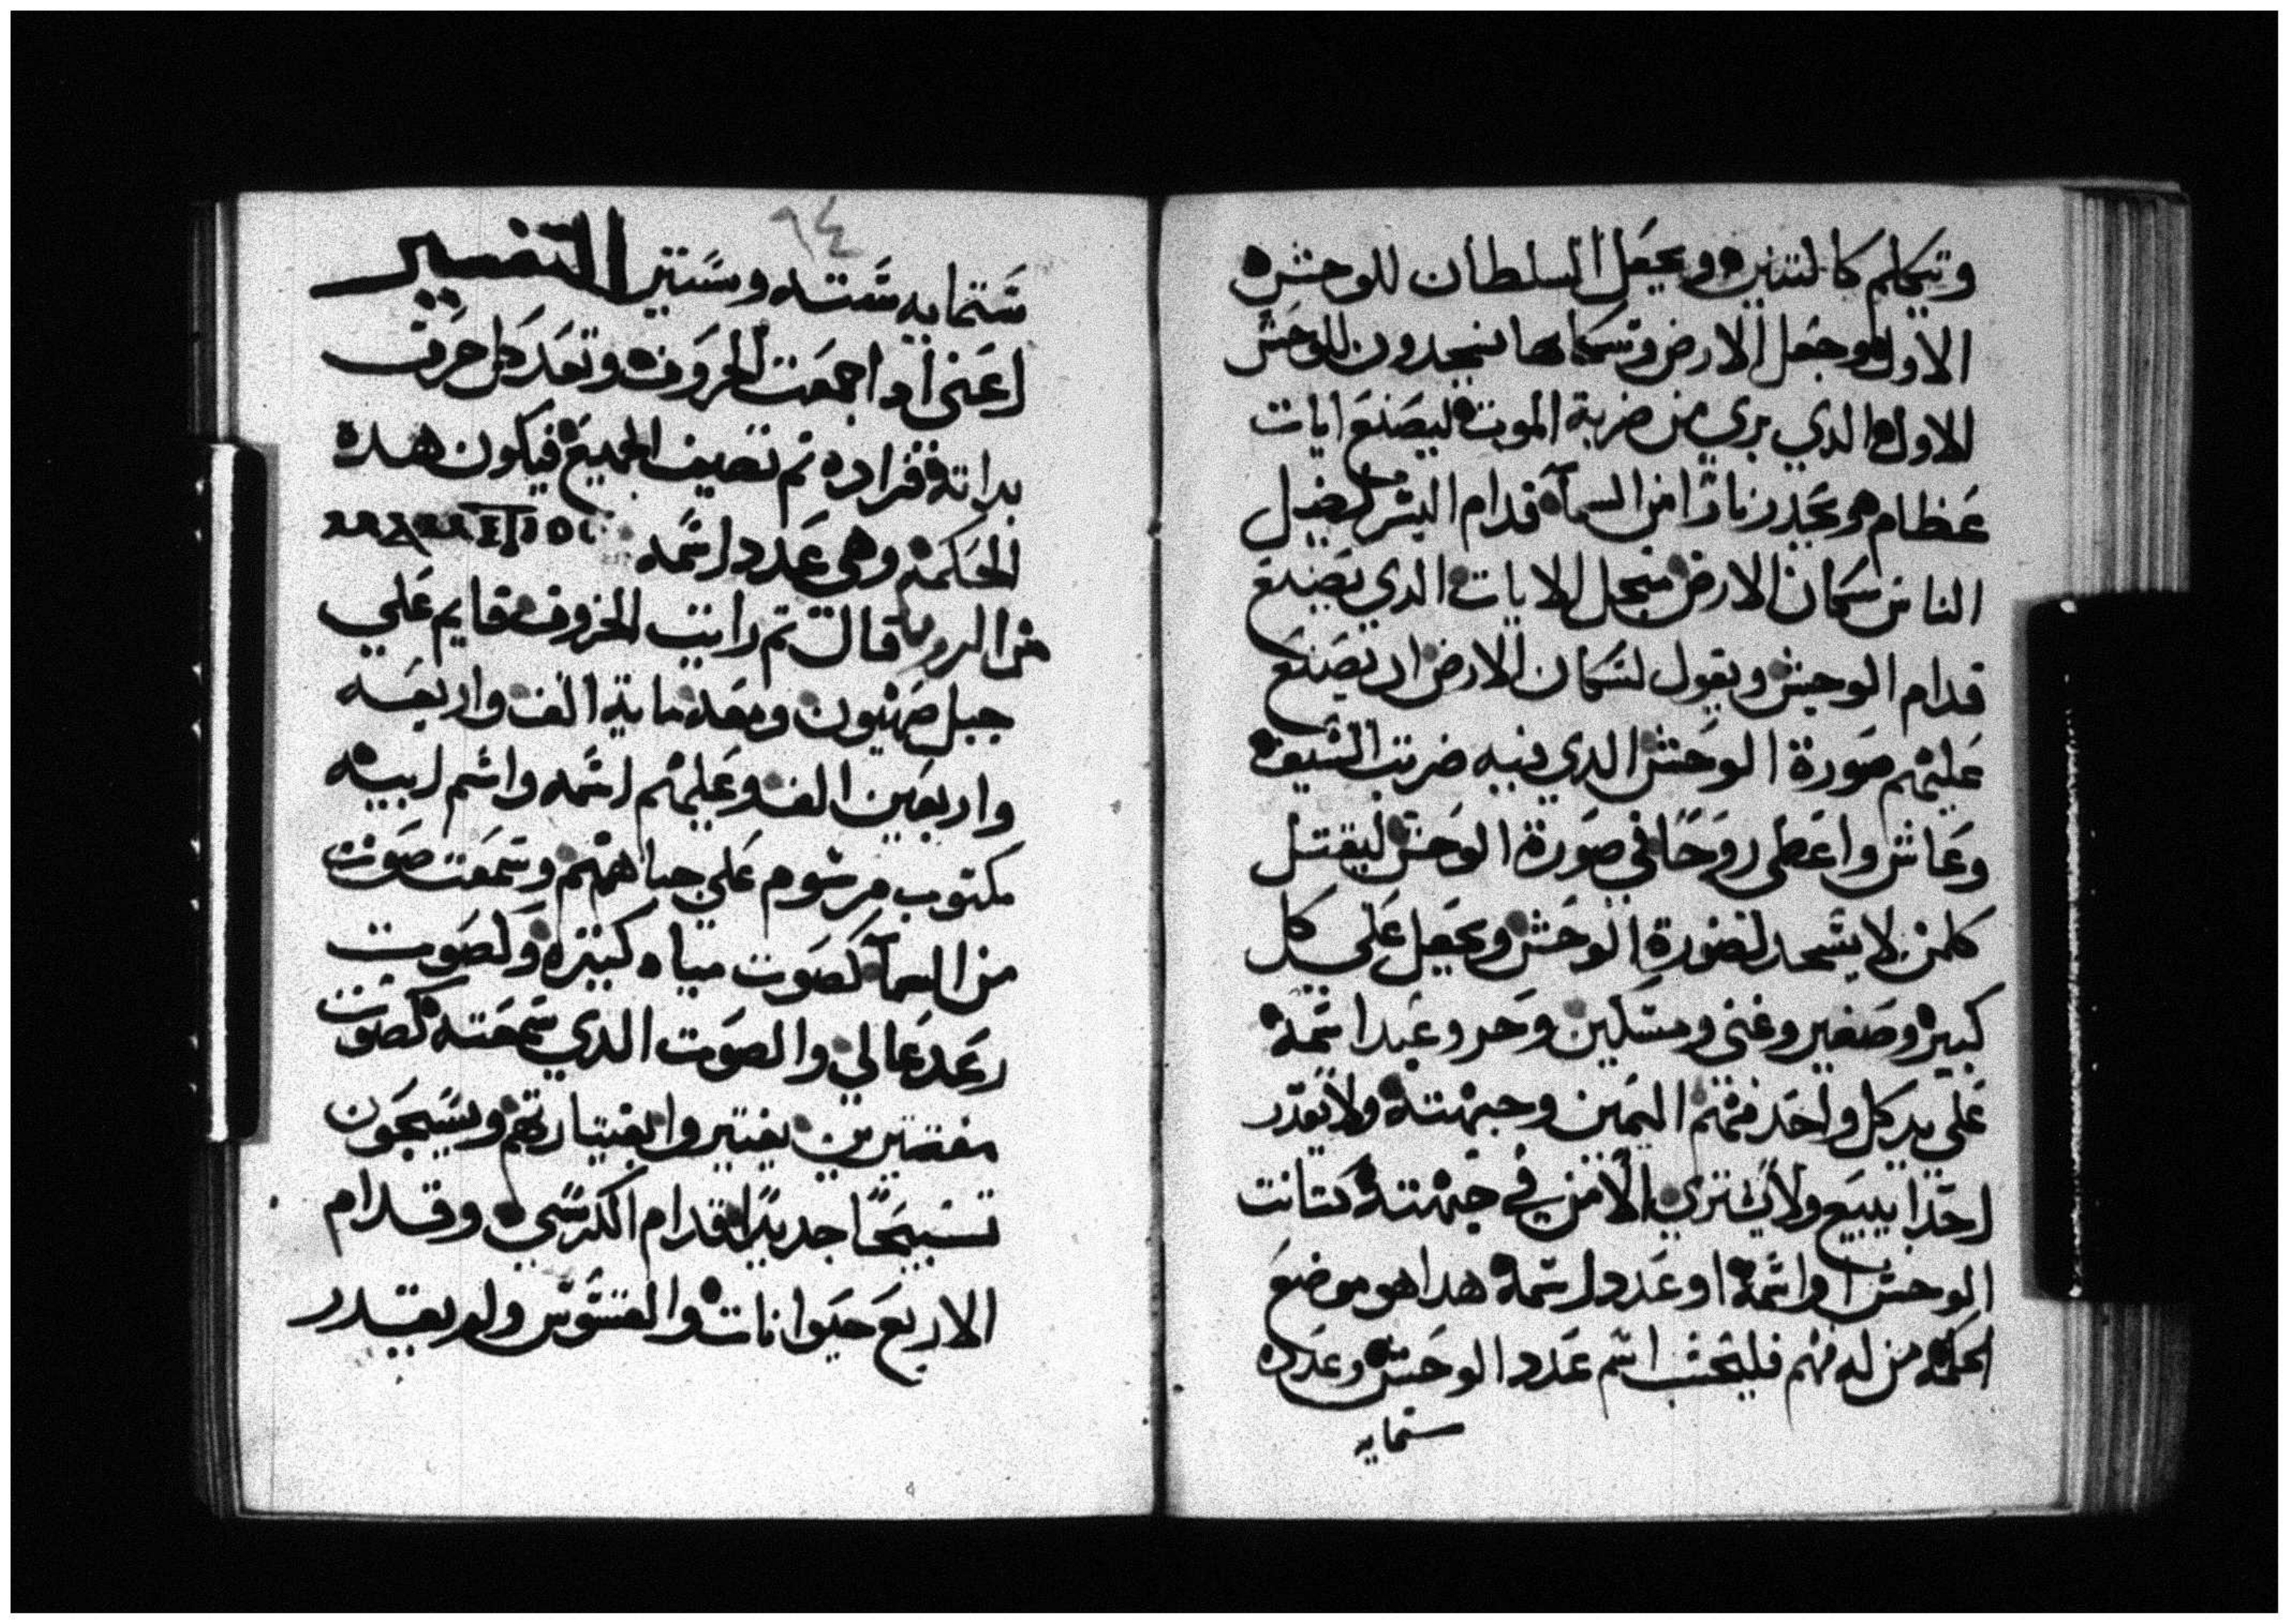 ويتكلم كالتنين ويجعل السلطان للوحش
الاول وجعل الارض وسكانها يسجدون للوحش
الاول الدي بري من ضربة الموت ليصنع ايات
عظام هو يحدر نارًا من السمآ قدام البشر ليضل
الناس سكان الارض من اجل الايات الدي يصنع
قدام الوحش ويقول لسكان الارض ان يصنع
عليهم صورة الوحش الدي فيه ضربت السيف
وعاش واعطى روحًا في صورة الوحش ليقتل
كلمن لا يسجد لصورة الوحش ويجعل على كل
كبير وصغير وغنى ومسكين وحر وعبد اسمه
على يد كل واحد منهم اليمين وجبهته ولا يقدر
احدا يبيع ولا يشتري الا من في جبهته كتابت
الوحش او اسمه او عدد اسمه هدا هو موضع
الحكمه من له فهم فليحسب اسم عدد الوحش وعدده
ستمايه
٩٤
ستمايه سته وستين التفسير
اعنى ادا جمعت الحروف وتعد كل حرف
بداته قراده تم تضيف الجميع فيكون هده
الحكمه وهى عدد اسمه
من الرويا قالت تم رايت الخروف قايم على
جبل صهيون ومعه ماية الف واربعه
واربعين الف وعليهم اسمه واسم ابيه
مكتوب مرسوم على جباههم وسمعت صوت
من السمآ كصوت مياه كتيره وكصوت
رعد عالي والصوت الدي سمعته كصوت
يقيتروا بقيتاراتهم ويسبحون
تسبيحًا جديدًا قدام الكرسي وقدام
الاربع حيوانات والقسوس ولم يقدر